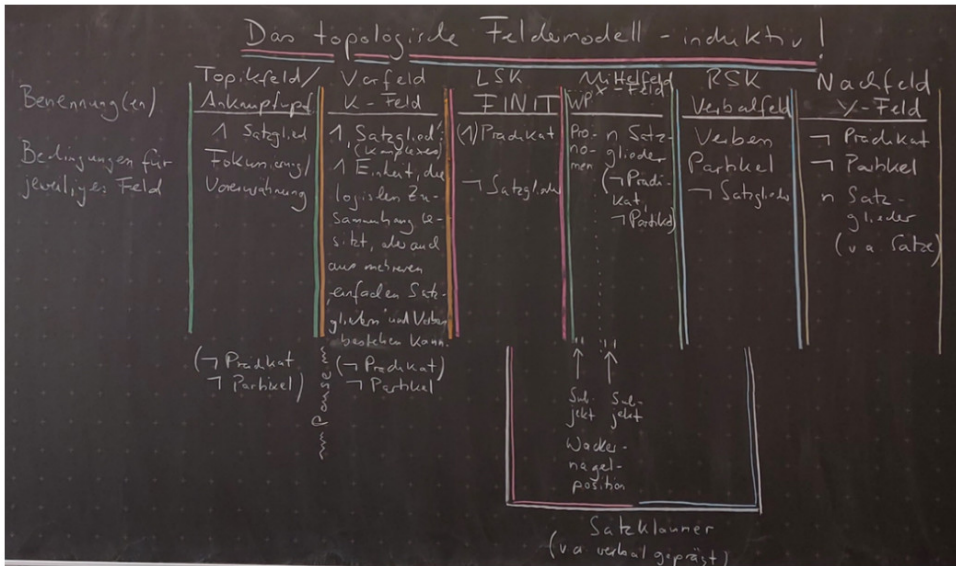 Das topologische Feldermodell - induktiv!
Benennung(en)
Bedingungen für
jeweiliges Feld
Topikfeld/
Anknüpfungspf
1 Satzglied
Fokussierung/
Vorerwähnung
(¬ Prädikat
¬ Partikel)
Pause
Vorfeld
K-Feld
1 "Satzglied"!
(komplexes)
1 Einheit, die
logischen Zu-
sammenhang be-
sitzt, aber auch
aus mehreren
"einfachen Satz-
gliedern" und Verben
bestehen kann.
(¬ Prädikat)
¬ Partikel
LSK
FINIT
(1) Prädikat
¬ Satzglieder
Mittelfeld
X-Feld
WP
Pro-
no-
men
n Satz-
glieder
(¬ Prädi-
kat,
¬ Partikel)
Sub-
jekt
Sub-
jekt
Wacker-
nagel-
position
RSK
Verbalfeld
Verben
Partikel
¬ Satzglieder
Nachfeld
Y-Feld
¬ Prädikat
¬ Partikel
n Satz-
glieder
(v.a. Sätze)
Satzklammer
(v.a. verbal geprägt)